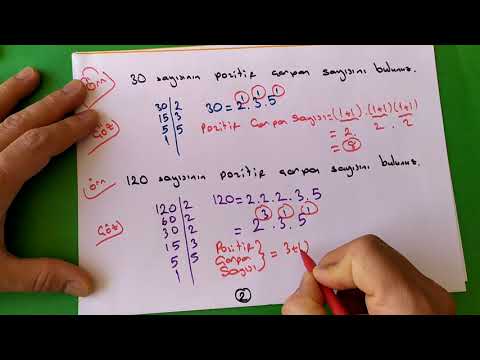 Örn
30 sayısının pozitif çarpan sayısını bulunuz.
Çöz
30 | 2
15 | 3
5 | 5
1
30 = 2¹.3¹.5¹
Pozitif Çarpan Sayısı = (1+1).(1+1)(1+1)
= 2.2.2
= 8
Örn
120 sayısının pozitif çarpan sayısını bulunuz.
Çöz
120 | 2
60 | 2
30 | 2
15 | 3
5 | 5
1
120 = 2.2.2.3.5
= 2³.3¹.5¹
Pozitif
Çarpan
Sayısı
} = 3+1
2